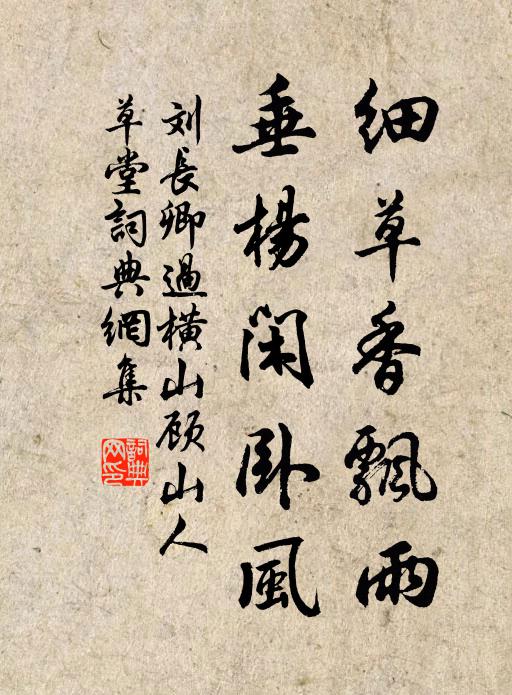 细草香飘雨
垂杨闲卧风
刘長卿過橫山顾山人
草堂詞典網集
詞典
网印